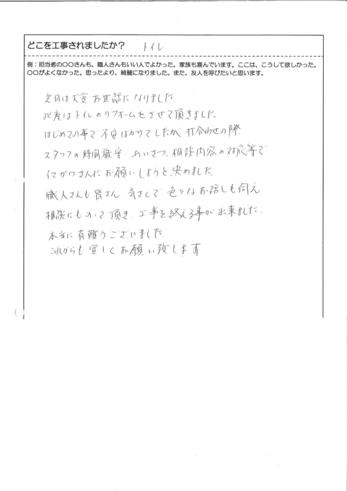 どこを工事されましたか？ トイレ
例：担当者の〇〇さんも、職人さんもいい人でよかった。家族も喜んでいます。ここは、こうして欲しかった。
〇〇がよくなかった。思ったより、綺麗になりました。また、友人を呼びたいと思います。
先日は大変お世話になりました。
此度はトイレのリフォームをさせて頂きました。
はじめての事で不安ばかりでしたが、打合わせの際
スタッフの時間厳守、あいさつ、相談内容の対応等で
にかつさんにお願いしようと決めました。
職人さんも皆さん 気さくで 色々なお話しも伺え
相談にものって頂き 工事を終える事が出来ました。
本当に有難うございました。
これからも宜しくお願い致します